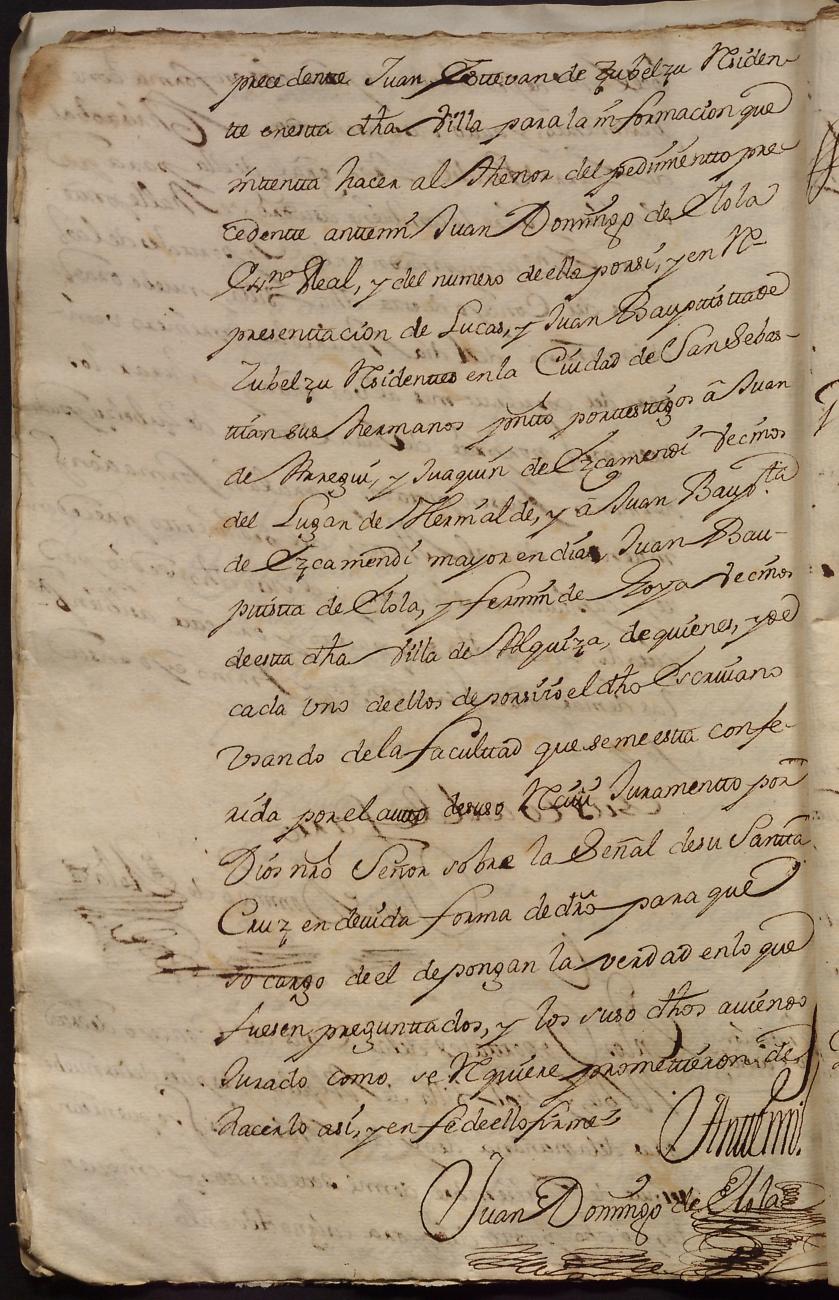 precedente Juan Esttevan de Zubelzu Residen-
tte enestta dha Villa para la informacion que
intentta hacer al Thenor del pedimentto pre-
cedentte anttemi Juan Domingo de Elola
Essno Real, y del numero de ella porsi, y en Re-
presenttacion de Lucas, y Juan Bauptistta de
Zubelzu Residenttes en la Ciudad de San Sebas-
ttian sus hermanos presentto porttesttigos â Juan
de Arregui, y Juaquin de Ezcamendi Vecinos
del Lugar de Hernialde, y â Juan Baupta
de Ezcamendi mayor en dias Juan Bau-
ptistta de Elola, y fermin de Roya Vecinos
de estta dha Villa de Alquiza, de quienes, y de
cada Uno de ellos de porsi io el dho Escriuano
Vsando de la faculttad que semeestta confe-
rida por el autto desuso Reciui Juramentto por
Dios nro Señor sobre la Señal desu Santta
Cruz en deuida forma de dro para que
so cargo de el depongan la verdad en lo que
fuesen preguntados, y los suso dhos auiendo
Jurado como se Requiere promettieron de
hacerlo asi, y en fe de ello firme
Anttemi.
Juan Domingo de Elola